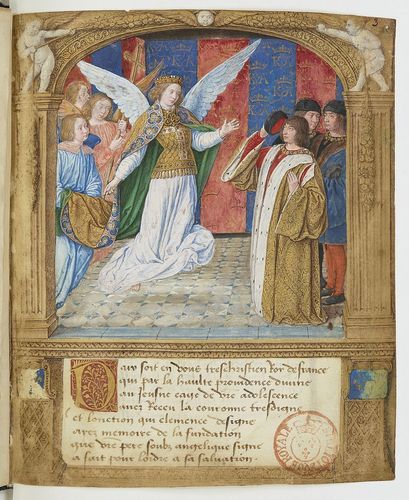 Paix soit en vous treschrestien Roy de france
qui par la haulte providence divine
en jeusne eage de vre adolescence
avez Receu la couronne tresdigne
et lonction qui clemence designe
ayez memoire de la fundation
que vre pere soubz angelique signe
a fait pour lordre a sa salvation.